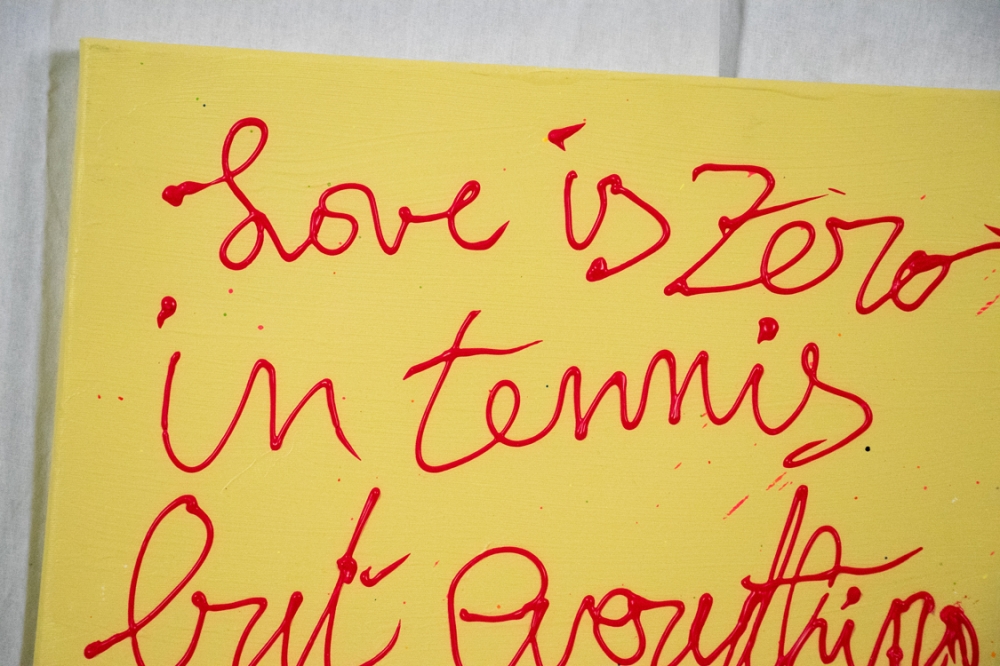 Love is Zero
in tennis
but everything